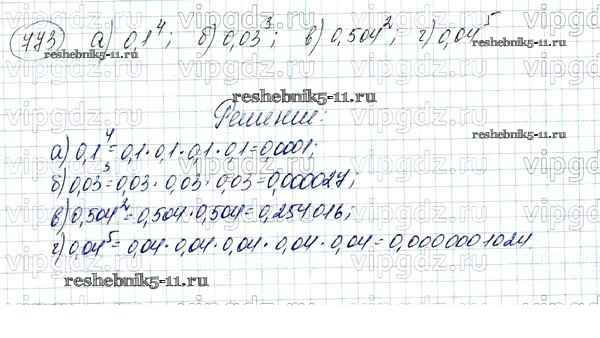 773 а) 0,1⁴; б) 0,03³; в) 0,504²; г) 0,04⁵
reshebnik5-11.ru reshebnik5-11.ru
reshebnik5-11.ru
Решение: reshebnik5-11.ru
а) 0,1⁴=0,1·0,1·0,1·0,1=0,0001;
б) 0,03³=0,03·0,03·0,03=0,000027;
в) 0,504²=0,504·0,504=0,254016;
г) 0,04⁵=0,04·0,04·0,04·0,04·0,04=0,0000001024
reshebnik5-11.ru
vipgdz.ru